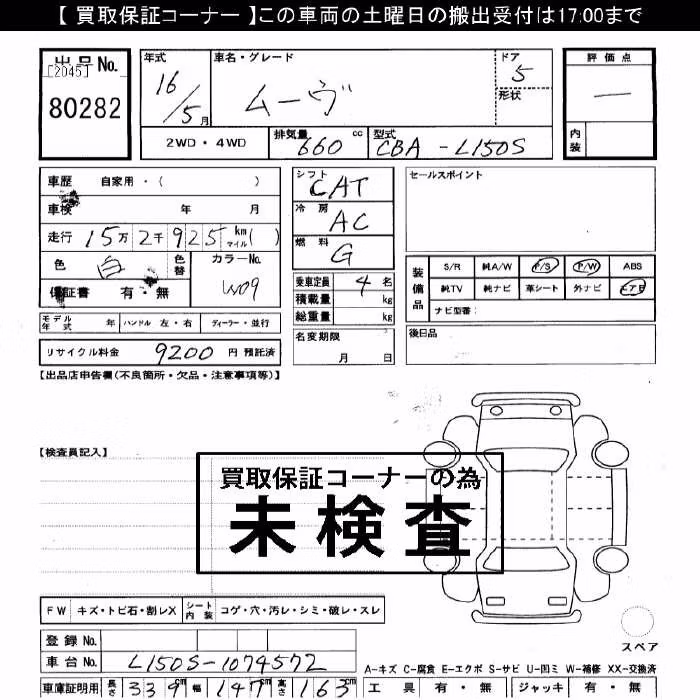 【 買取保証コーナー 】この車両の土曜日の搬出受付は17:00まで
出品No.
[2045]
80282
年式
16/5月
車名・グレード
ムーヴ
ドア
5
形状
評価点
—
内装
2WD・4WD
排気量 660 cc
型式 CBA-L150S
車歴 自家用・( )
車検 年 月
走行 15万2千925 km マイル( )
色 白 色替
カラーNo.
W09
保証書 有・無
シフト
CAT
冷房
AC
燃料
G
乗車定員 4 名
積載量 kg
総重量 kg
セールスポイント
装備品
S/R 純A/W P/S P/W ABS
純TV 純ナビ 革シート 外ナビ エアB
ナビ型番:
モデル年式 年 ハンドル 左・右 ディーラー・並行
名変期限
月 日
後日品
リサイクル料金 9200 円 預託済
【出品店申告欄(不良箇所・欠品・注意事項等)】
【検査員記入】
買取保証コーナーの為
未検査
FW キズ・トビ石・割レX シート内装 コゲ・穴・汚レ・シミ・破レ・スレ
スペア
登録No.
車台No. L150S-1074572
A-キズ C-腐食 E-エクボ S-サビ U-凹ミ W-補修 XX-交換済
車庫証明用 長さ 339cm 幅 147cm 高さ 163cm
工具 有・無 ジャッキ 有・無